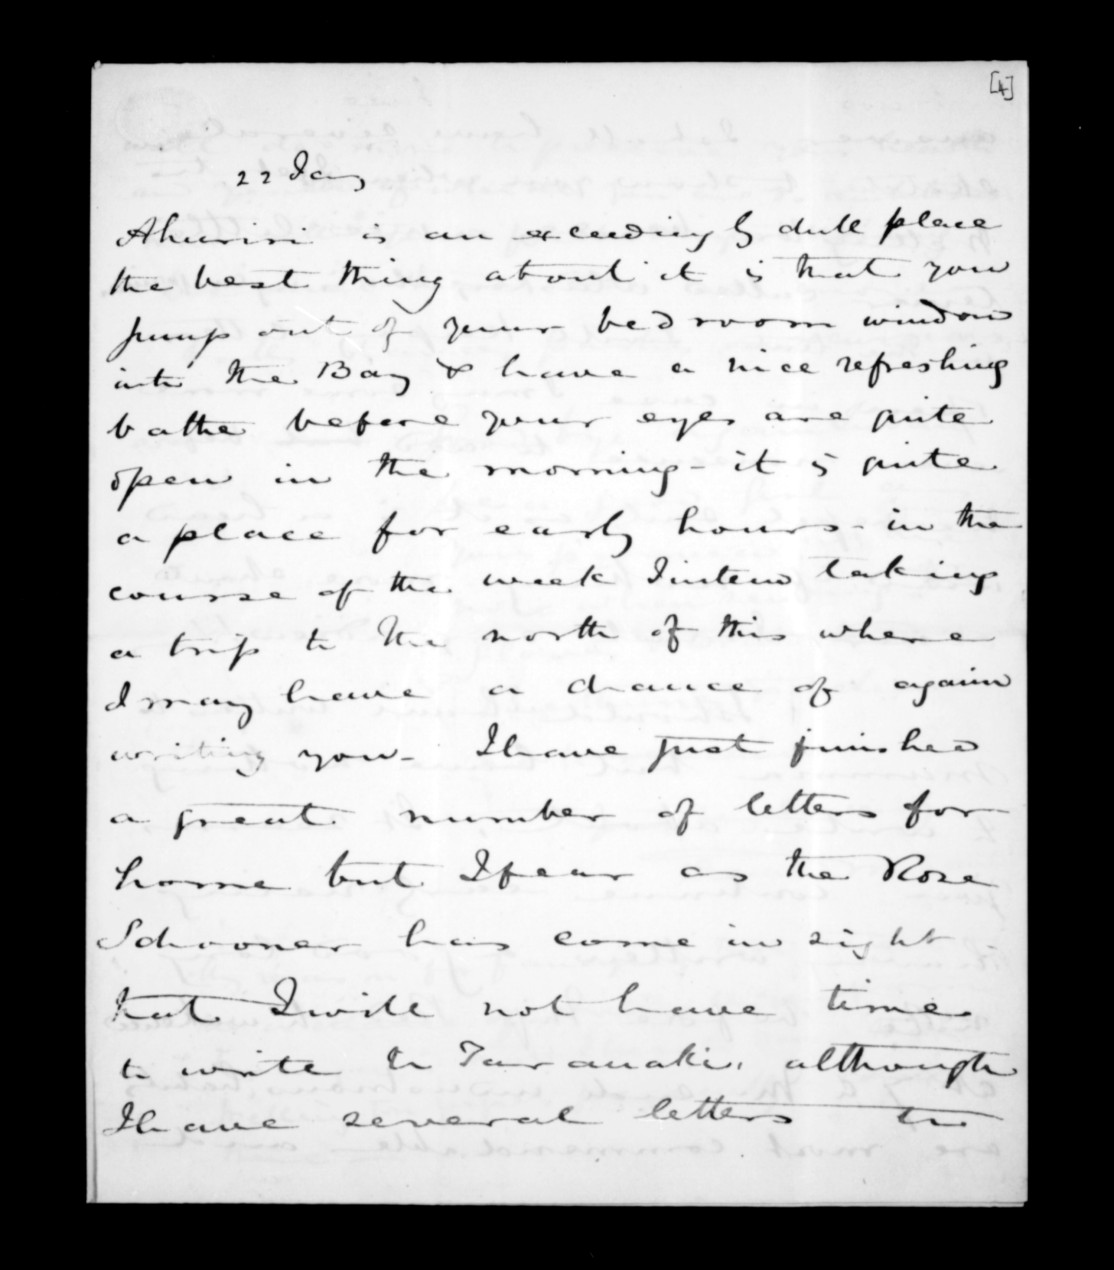 [4]
22 Jan
Ahuriri is an exceedingly dull place
the best thing about it is that you
jump out of your bedroom window
into the Bay & have a nice refreshing
bathe before your eyes are quite
open in the morning - it is quite
a place for early hours - in the
course of the week I intend taking
a trip to the north of this where
I may have a chance of again
writing you - I have just finished
a great number of letters for
home but I fear as the Rose
Schooner has come in sight
that I will not have time
to write to Taranaki, although
I have several letters to